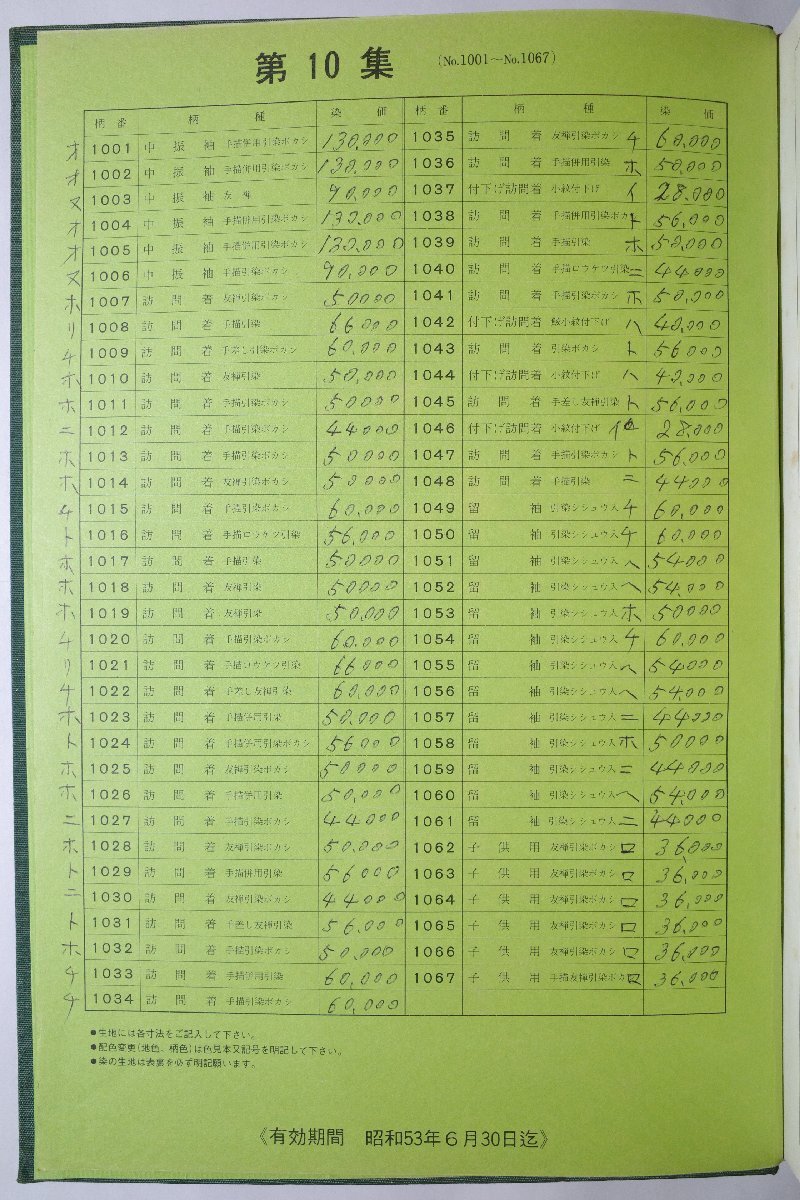 第10集 (No.1001〜No.1067)
柄番 柄種 染価 柄番 柄種 染価
オ 1001 中振袖 手描併用引染ボカシ 130,000
オ 1002 中振袖 手描併用引染ボカシ 130,000
ヌ 1003 中振袖 友禅 90,000
オ 1004 中振袖 手描併用引染ボカシ 130,000
オ 1005 中振袖 手描併用引染ボカシ 130,000
ヌ 1006 中振袖 手描引染ボカシ 90,000
ホ 1007 訪問着 友禅引染ボカシ 50000
リ 1008 訪問着 手描引染 66000
チ 1009 訪問着 手差し引染ボカシ 60,000
ホ 1010 訪問着 友禅引染 50,000
ホ 1011 訪問着 手描引染ボカシ 50000
ニ 1012 訪問着 手描引染ボカシ 44000
ホ 1013 訪問着 手描引染ボカシ 50000
ホ 1014 訪問着 友禅引染ボカシ 50000
チ 1015 訪問着 手描引染ボカシ 60,000
ト 1016 訪問着 手描ロウケツ引染 56,000
ホ 1017 訪問着 手描引染 50000
ホ 1018 訪問着 友禅引染 50000
ホ 1019 訪問着 友禅引染 50,000
チ 1020 訪問着 手描引染ボカシ 60,000
リ 1021 訪問着 手描ロウケツ引染 66000
チ 1022 訪問着 手差し友禅引染 60,000
ホ 1023 訪問着 手描併用引染 50,000
ト 1024 訪問着 手描併用引染ボカシ 56000
ホ 1025 訪問着 友禅引染ボカシ 50000
ホ 1026 訪問着 手描併用引染 50,000
ニ 1027 訪問着 手描引染ボカシ 44000
ホ 1028 訪問着 友禅引染ボカシ 50,000
ト 1029 訪問着 手描併用引染 56000
ニ 1030 訪問着 友禅引染ボカシ 44000
ト 1031 訪問着 手差し友禅引染 56,000
ホ 1032 訪問着 手描引染ボカシ 50,000
チ 1033 訪問着 手描併用引染 60,000
チ 1034 訪問着 手描引染ボカシ 60,000
1035 訪問着 友禅引染ボカシ チ 60,000
1036 訪問着 手描併用引染 ホ 50,000
1037 付下げ訪問着 小紋付下げ イ 28,000
1038 訪問着 手描併用引染ボカシ ト 56,000
1039 訪問着 手描引染 ホ 50,000
1040 訪問着 手描ロウケツ引染 ニ 44000
1041 訪問着 手描引染ボカシ ホ 50,000
1042 付下げ訪問着 鮫小紋付下げ ハ 40,000
1043 訪問着 引染ボカシ ト 56000
1044 付下げ訪問着 小紋付下げ ハ 40,000
1045 訪問着 手差し友禅引染 ト 56,000
1046 付下げ訪問着 小紋付下げ イ 28,000
1047 訪問着 手描引染ボカシ ト 56,000
1048 訪問着 手描引染 ニ 44000
1049 留袖 引染シシュウ入 チ 60,000
1050 留袖 引染シシュウ入 チ 60,000
1051 留袖 引染シシュウ入 ヘ 54000
1052 留袖 引染シシュウ入 ヘ 54,000
1053 留袖 引染シシュウ入 ホ 50000
1054 留袖 引染シシュウ入 チ 60,000
1055 留袖 引染シシュウ入 ヘ 54000
1056 留袖 引染シシュウ入 ヘ 54,000
1057 留袖 引染シシュウ入 ニ 44000
1058 留袖 引染シシュウ入 ホ 50000
1059 留袖 引染シシュウ入 ニ 44000
1060 留袖 引染シシュウ入 ヘ 54,000
1061 留袖 引染シシュウ入 ニ 44000
1062 子供用 友禅引染ボカシ ロ 36,000
1063 子供用 友禅引染ボカシ ロ 36,000
1064 子供用 友禅引染ボカシ ロ 36,000
1065 子供用 友禅引染ボカシ ロ 36,000
1066 子供用 友禅引染ボカシ ロ 36,000
1067 子供用 手描友禅引染ボカシ ロ 36,000
●生地には各寸法をご記入して下さい。
●配色変更(地色、柄色)は色見本又記号を明記して下さい。
●染の生地は表裏を必ず明記願います。
《有効期間 昭和53年6月30日迄》